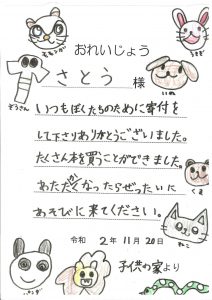 おれいじょう
さとう 様
いつもぼくたちのために寄付を
して下さりありがとうございました。
たくさん本を買うことができました。
あたたかくなったらぜったいに
あそびに来てください。
令和 2年 11月 20日
子供の家より
ももんが
うさぎ
ぞうさん
いぬ
くま
ねこ
パンダ